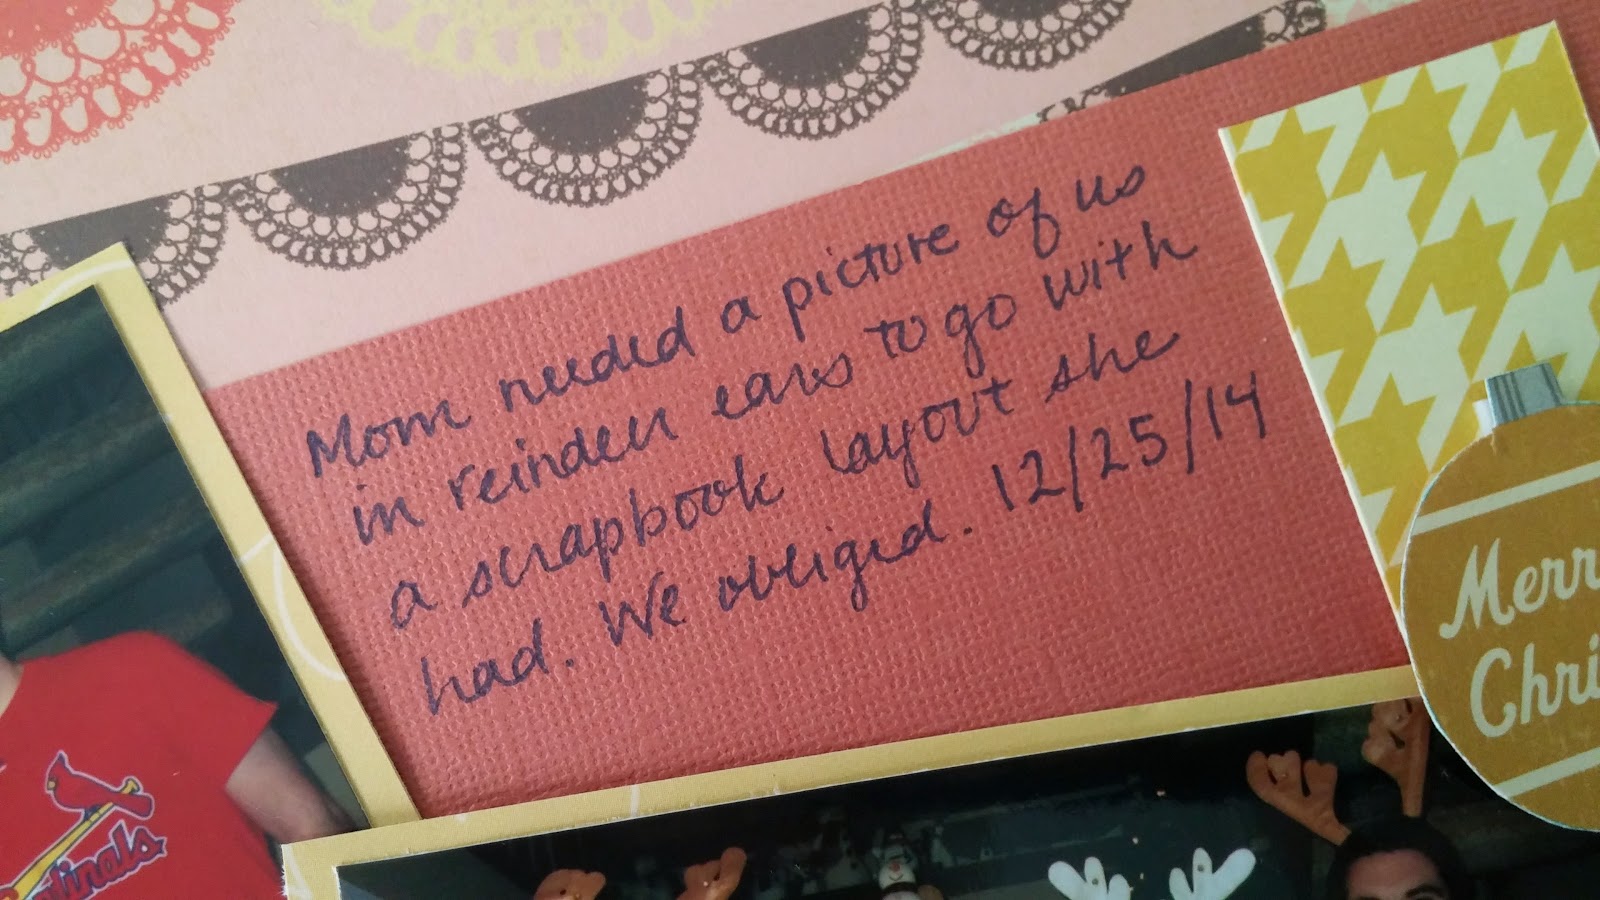 Mom needed a picture of us
in reindeer ears to go with
a scrapbook layout she
had. We obliged. 12/25/14
Merr
Chri
Cardinals